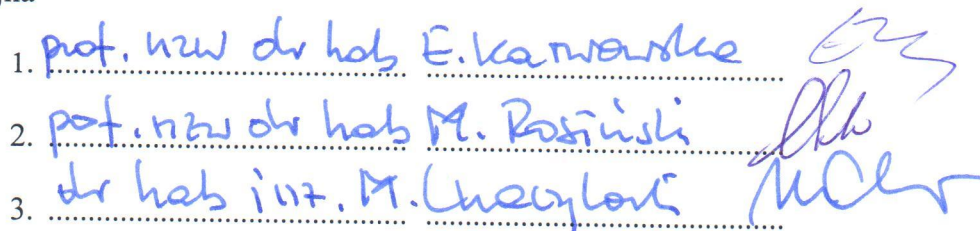 1. prof. nzw dr hab E. Karwowska
2. prof. nzw dr hab M. Rosiński
3. dr hab inż. M.